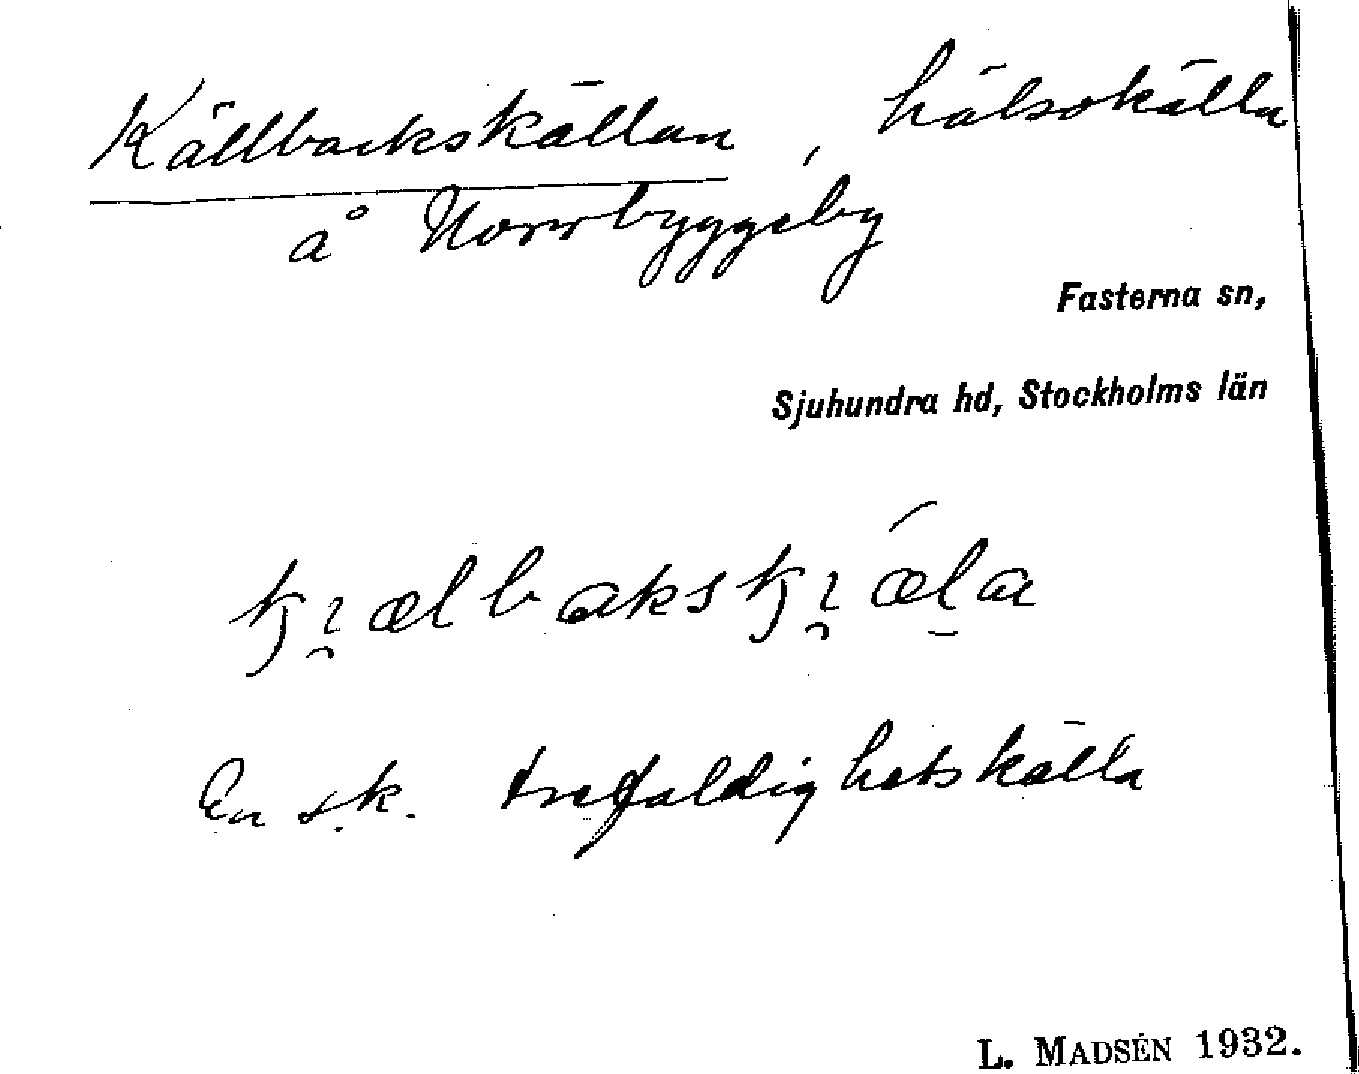 Källbackskällan, hälsokälla
å Norrbyggeby
Fasterna sn,
Sjuhundra hd, Stockholms län
En s.k. trefaldighetskälla
L. MADSÉN 1932.